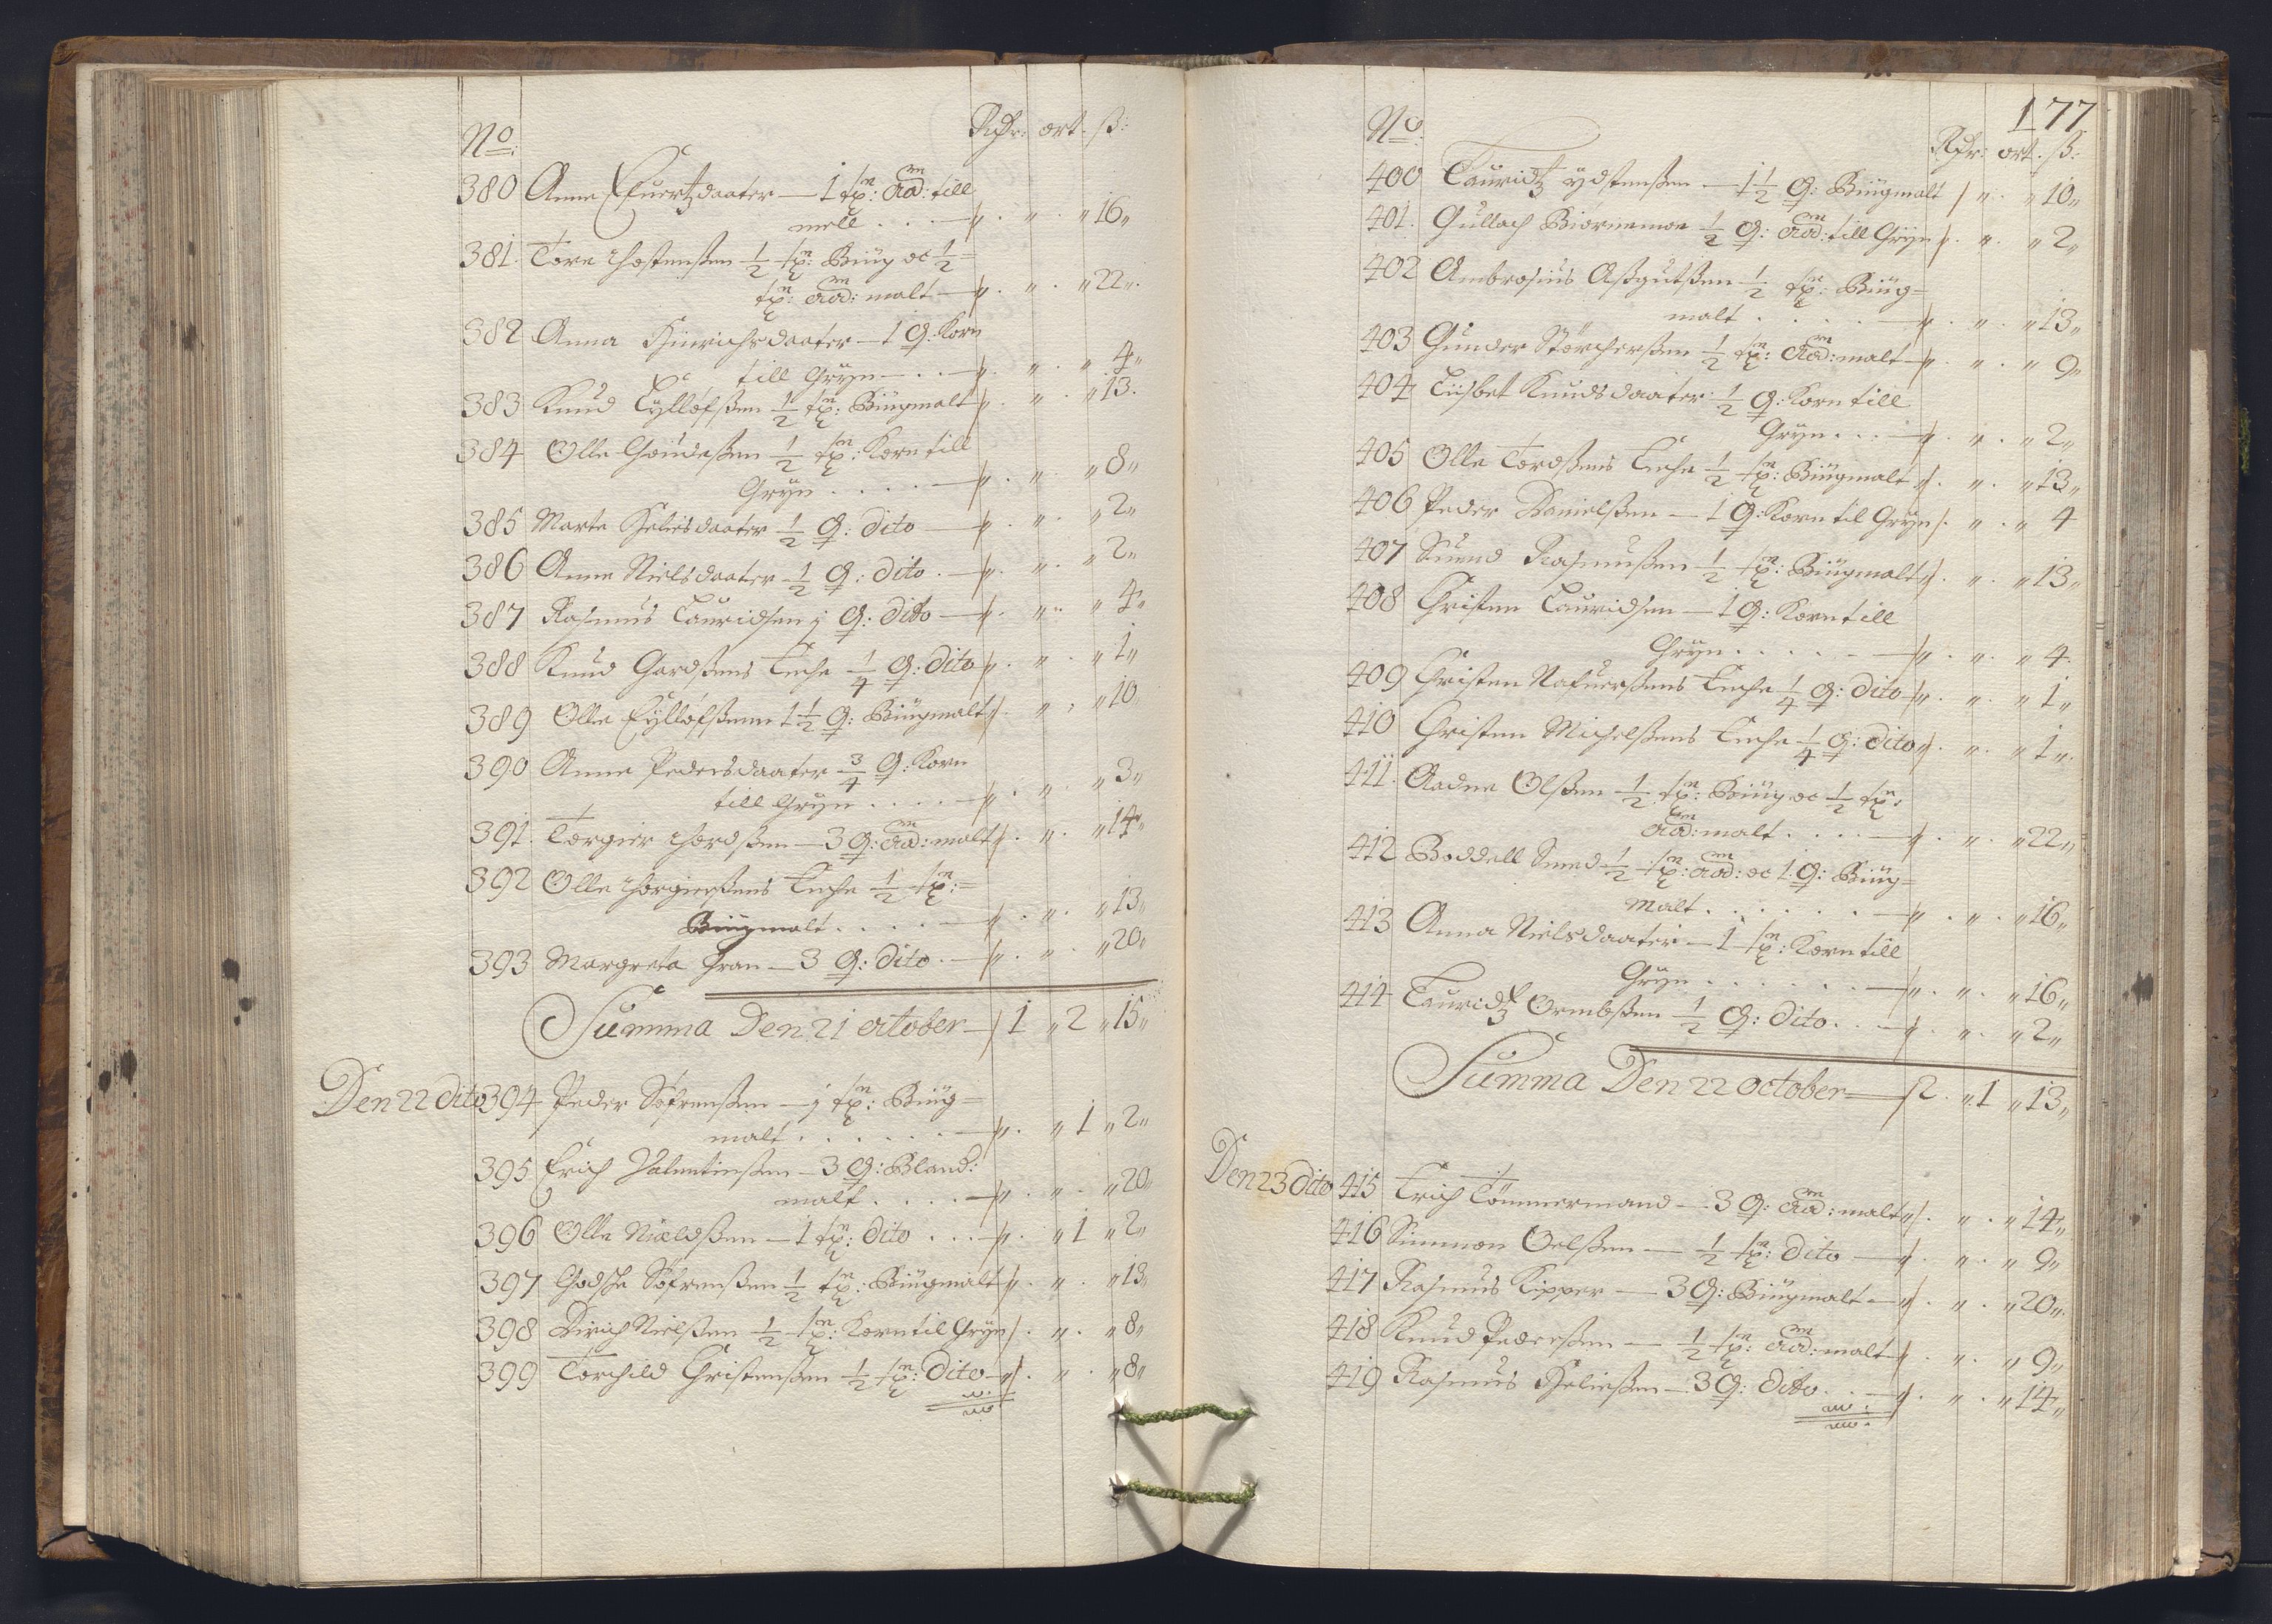 No:
Rdr: ort. ß:
380 Anne Efuertzdaater — 1 tn: Aad: till
mell . . — „ . „ . „ 16 „
381. Tore Thostenßen ½ tn: Biug oc ½ =
tn: Aad: malt — „ . „ . „ 22 „
382 Anna Hinrichsdaater — 1 Q: Korn
till Gryn — . . — „ . „ . „ 4 „
383 Knud Eyllofßen ½ tn: Biugmalt „ . „ . „ 13.
384 Olle Goudeßen ½ tn: Korn till
Gryn . . . . — „ . „ . „ 8 „
385 Marte Helisdaater ½ Q: dito — „ . „ . „ 2 „
386 Anne Nielsdaater — ½ Q: dito . — „ . „ . „ 2 „
387 Rasmus Lauridsen j Q: dito — „ . „ . „ 4 „
388 Knud Gordßens Enche ¼ Q: dito „ . „ . „ 1 „
389 Olle Eyllofßenn 1½ Q: Biugmalt „ . „ . „ 10
390 Anne Pedersdaater — ¾ Q: Korn
till Gryn . . . . — „ . „ . „ 3 „
391. Torgier Thordßen — 3 Q: Aad: malt „ . „ . „ 14 „
392 Olle Thorgierßens Enche ½ tn: =
Biugmalt . . . . — „ . „ . „ 13 „
393 Margreta Gran — 3 Q: dito . — „ . „ . „ 20 „
Summa Den 21 october — 1 „ 2 „ 15 „
Den 22 dito 394 Peder Sofrenßen — j tn: Biug =
malt . . . . . . — „ . „ 1 „ 2 „
395 Erich Valentinßen — 3 Q: Bland:
malt . . . . — „ . „ . „ 20 „
396 Olle Nieldßen — 1 tn: dito . . . — „ . „ 1 „ 2 „
397 Godske Sofrenßen ½ tn: Biugmalt „ . „ . „ 13 „
398 Dirich Nielßen ½ tn: Korn til Gryn . „ . „ 8 „
399 Torchild Christenßen ½ tn: Dito — „ . „ . „ 8 „
177
No:
Rdr: ort. ß:
400 Lauridtz ydstenßen — 1½ Q: Biugmalt „ . „ 10 „
401. Gullach Biornemoe ½ Q: Aad: till Gryn „ . „ . „ 2 „
402 Ambrosius Aßgutßen — ½ tn: Biug =
malt . . . . . — „ . „ . „ 13 „
403 Gunder Storcherßen ½ tn: Aad: malt — „ . „ . „ 9 „
404 Lisbet Knudsdaater ½ Q: Korn till
Gryn . . . — „ . „ . „ 2 „
405 Olle Tordßens Enche ½ tn: Biugmalt „ . „ . „ 13 „
406 Peder Danielßen — 1 Q: Korn til Gryn . „ . „ 4
407 Suend Rasmußen ½ tn: Biugmalt „ . „ . „ 13 „
408 Christen Lauridsen — 1 Q: Korn till
Gryn . . . . . . — „ . „ . „ 4.
409 Christen Nafuerßens Enche ¼ Q: dito „ . „ . „ 1 „
410 Christen Michelßens Enche ¼ Q: dito „ . „ . „ 1 „
411. Aadne Olßen — ½ tn: Biug oc ½ tn:
Aad: malt . . . . — „ . „ . „ 22 „
412 Boddell Smed ½ tn: Aad: oc 1 Q: Biug =
Malt . . . . . . — „ . „ . „ 16 „
413 Anna Nielsdaater — 1 tn: Korn till
Gryn . . . . . . — „ . „ . „ 16 „
414 Lauridtz Ormbßen ½ Q: dito . . — „ . „ . „ 2 „
Summa Den 22 October — 2 . „ 1 „ 13 „
Den 23 dito 415 Erich Tömmermand — 3 Q: Aad: malt „ . „ . „ 14 „
416 Simmon Oelßen — ½ tn: dito — „ . „ . „ 9 „
417 Rasmus Kipper — 3 Q: Biugmalt — „ . „ . „ 20 „
418 Knud Pederßen — ½ tn: Aad: malt „ . „ . „ 9 „
419 Rasmus Heließen — 3 Q: dito . . — „ . „ . „ 14 „